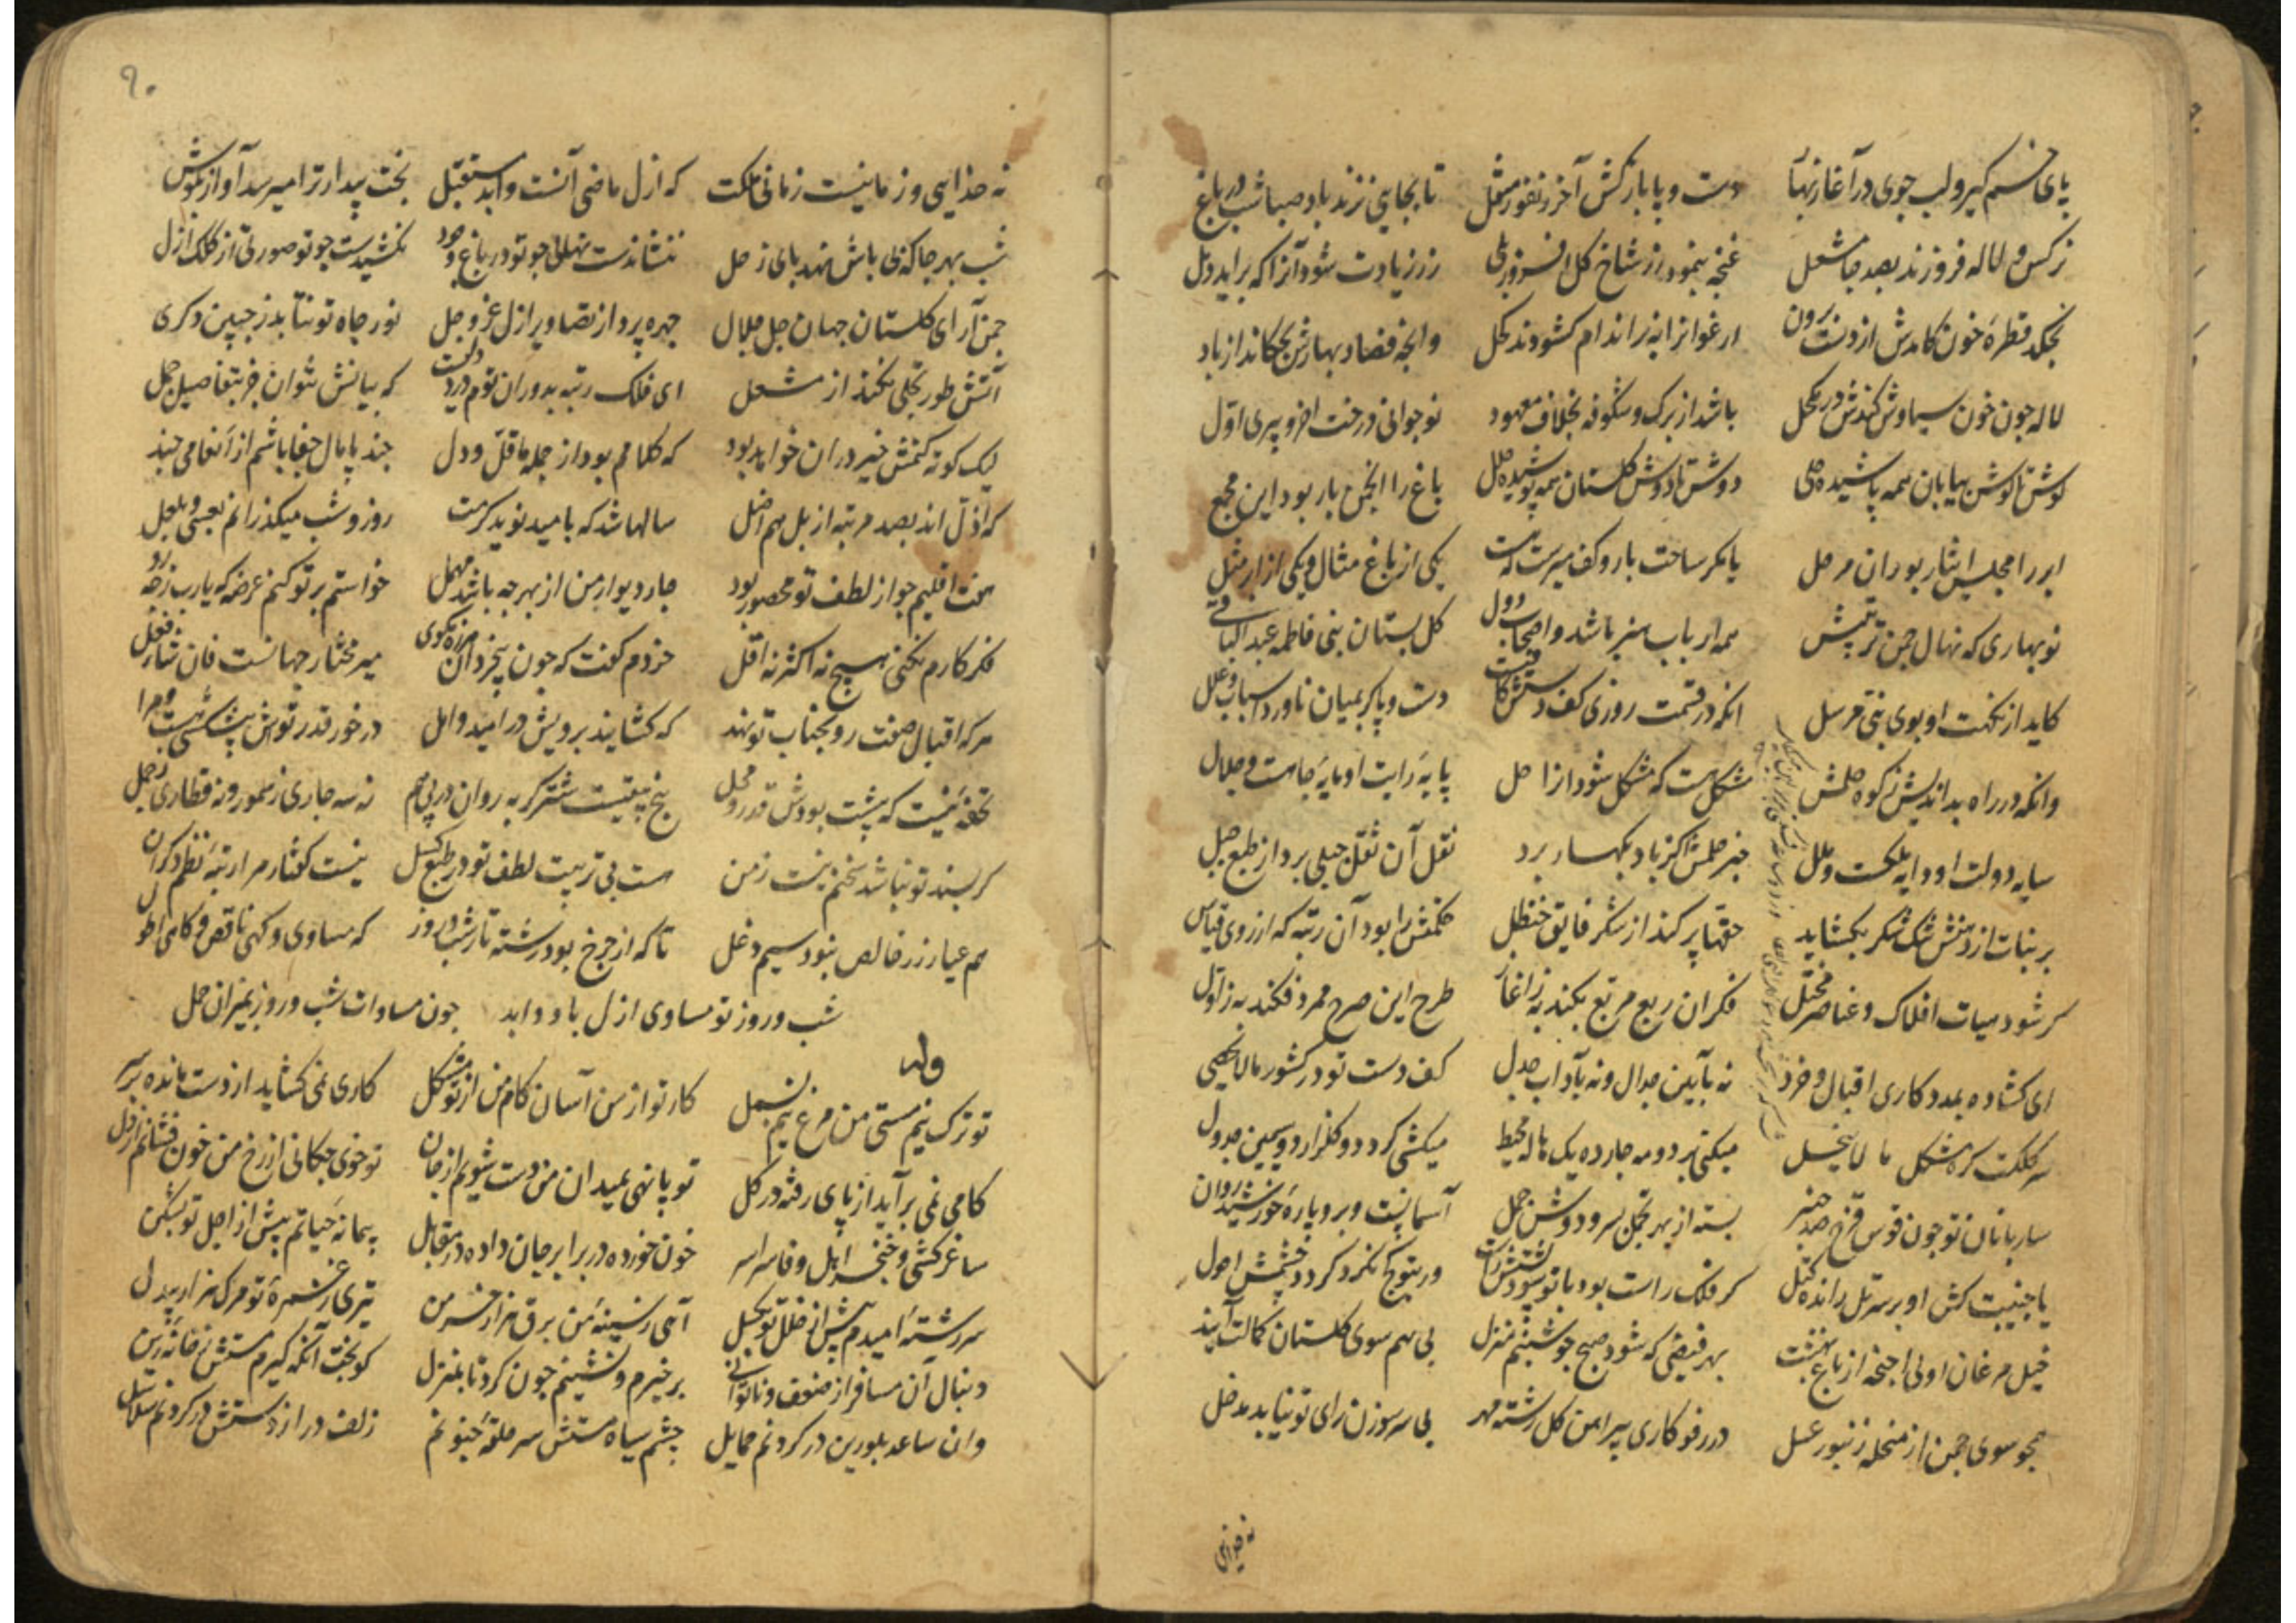 پای خم گیر و لب جوی در آغاز بهار دست و پا بازکش آخر ز نفوز منقل تا بجایی نزند باد صبا شب در باغ
نرکس و لاله فروزند بصد جا مشعل غنچه بنمود ز شاخ کل افسرزر زیادت شود آنرا که برآید دمل
نچکد قطرۀ خون کامدش از دست برون ارغوانرا نه ز اندام کشودند کحل وانچه فصاد بهارش بچکاند از باد
لاله چون خون سیاوش کندش در مکحل باشد از برک و شکوفه بخلاف معهود نوجوانی درخت اخر و پیری اوّل
کوش تا کوش بیابان همه پاشیده حلی دوش تا دوش کلستان همه پوشیده حلل باغ را انجمن بار بود این مجمع
ابر را مجلس ایثار بود ان مرحل یا مکر ساحت بار و کف میرست که هست یکی از باغ مثال و یکی از ابر مثل
نوبهاری که نهال چمن تربیتش همه ارباب هنر باشد و اصحاب دول کل بستان بنی فاطمه عبد الباقی
کاید از نکهت او بوی بنی مرسل انکه در قسمت روزی کف دستش دست و پا کر بمیان ناورد اسباب و علل
وانکه در راه بداندیش ز کوه حلمش مشکل هست که مشکل شود از ازا حل پایۀ رایت او پایۀ جاهست و جلال
سایه دولت او دایه ملکست و ملل خبر حلمش اکر باد بکهسار برد نقل آن ثقل جبلی برد از طبع جبل
بر نبات از دهنش تنک شکر بکشاید حقها پر کند از شکر فایق حنظل حکمتش را بود آن رتبه که از روی قیاس
کر شود هیات افلاک و عناصر مختل فکر ان ربع مربع بکند به ز آغاز طرح این صرح ممرد فکند به ز اوّل
ای کشاده بمدد کاری اقبال و خرد نه بآیین جدال و نه بآداب جدل کف دست تو در کشور مالایحصی
سر کلکت کره مشکل ما لا ینحل میکنی بر دو مه چارده یک هاله محیط میکشی کرد دو کلزار دو سیمین جدول
ساربانان تو چون قوس قزح صد چنبر بسته از بهر تجمل بسر و دوش جمل آسمانیست و برو پارۀ خورشید روان
یا جنیبت کش او بر سر تل رانده کتل کر فلک راست بود با تو ور بتو کج نکرد کردد چشمش احول
خیل مرغان اولی اجنحه از باغ بهشت بهر فیضی که شود صبح چو شبنم منزل بی هم سوی کلستان کمالت آیند
همچو سوی چمن از منحله زنبور عسل در رفو کاری پیراهن کل رشته مهر بی سر سوزن رای تو نیاید بدخل
نه خدایی
۹۰
نه خدایی و زمانیست زمانی ملکت که ازل ماضی آنست و ابد مستقبل بخت بیدار ترا میرسد آواز بکوش
شب بهر جا که نهی باش نهد پای زحل ننشاندست نهالی چو تو در باغ وجود نکشیدست چو تو صورتی از کلک ازل
چمن آرای کلستان جهان جل جلال چهره پرداز تصاویر ازل عز و جل نور جاه تو نتابد ز جبین دکری
آتش طور تجلی نکند از مشعل ای فلک رتبه بدوران توم دردی هست که بیانش نتوان جز بتفاصیل جمل
لیک کوته کنمش خیر دران خواهد بود که کلامم بود از جمله ما قلّ و دل چند پامال جفا باشم از انعامی چند
که اذلّ اند بصد مرتبه از بل هم اضل سالها شد که بامید نوید کرمت روز و شب میکذرانم بعسی و بلعل
هفت اقلیم چو از لطف تو محصور بود چار دیوار من از بهر چه باشد مهمل خواستم بر تو کنم عرضه که یارب ز چه رو
فکر کارم نکنی هیچ نه اکثر نه اقل خردم کفت که چون بیخردان میر مختار جهانست فان شاء فعل
هر که اقبال صفت رو بجناب تو نهد که کشایند برویش در امید و امل در خور قدر توش پیشکشی هست و مرا
تحفه نیست که پشت بودش قدر و محل پنج بیتیست شتر کربه روان در پی هم نه سه جاری ز سمور و نه قطاری ز جمل
کر پسند تو نباشد سخنم نیست ز من هست بی تربیت لطف تو در طبع کسل نیست کفتار مرا رتبۀ نظم دکران
هم عیار زر خالص نبود سیم دغل تا که از چرخ بود رشته تار شب و روز که مساوی و کهی ناقص و کاهی اطول
شب و روز تو مساوی ازل باد و ابد چون مساوات شب و روز بمیزان حمل
وله
تو ترک نیم مستی من مرغ نیم بسمل کار تو از من آسان کام من از تو مشکل کاری نمی کشاید از دست مانده بر سر
کامی نمی برآید از پای رفته در کل تو پا نهی بمیدان من دست شویم از جان تو خوی چکانی از رخ من خون فشانم از دل
ساغر کشی و خنجر اهل وفا سراسر خون خورده در برابر جان داده در مقابل پیمانۀ حیاتم پیش از اجل تو بشکن
سر رشتۀ امیدم پیش از خلل تو بکسل آهی ز سینۀ من برق هزار خرمن تیری ز غمزۀ تو مرک هزار بیدل
دنبال آن مسافر از ضعف و ناتوانی برخیزم و نشینم چون کرد تا بمنزل کو بخت آنکه کیرم مستش ز خانۀ زین
وان ساعد بلورین در کردنم حمایل چشم سیاه مستش سر حلقۀ جنونم زلف دراز دستش در کردنم سلاسل